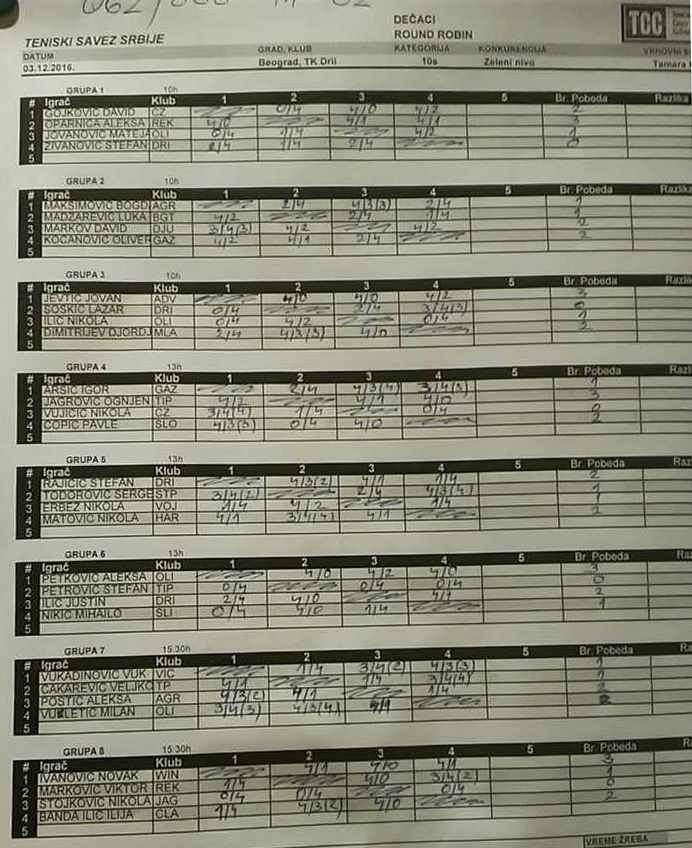 062/
TENISKI SAVEZ SRBIJE
DEČACI
ROUND ROBIN
TCC
DATUM GRAD, KLUB KATEGORIJA KONKURENCIJA VRHOVNI
03.12.2016. Beograd, TK Dril 10s Zeleni nivo Tamara
GRUPA 1 10h
# Igrač Klub 1 2 3 4 5 Br. Pobeda Razlika
1 GOJKOVIC DAVID CZ 0/4 4/0 4/2 2
2 OPARNICA ALEKSA REK 4/0 4/1 4/1 3
3 JOVANOVIC MATEJA OLI 0/4 1/4 4/2 1
4 ZIVANOVIC STEFAN DRI 2/4 1/4 2/4 0
5
GRUPA 2 10h
# Igrač Klub 1 2 3 4 5 Br. Pobeda Razlika
1 MAKSIMOVIC BOGD AGR 2/4 4/3(3) 2/4 1
2 MADZAREVIC LUKA BGT 4/2 2/4 1/4 1
3 MARKOV DAVID DJU 3/4(3) 4/2 4/2 2
4 KOCANOVIC OLIVER GAZ 4/2 4/1 2/4 2
5
GRUPA 3 10h
# Igrač Klub 1 2 3 4 5 Br. Pobeda Razlika
1 JEVTIC JOVAN ADV 4/0 4/0 4/2 3
2 SOSKIC LAZAR DRI 0/4 2/4 3/4(3) 0
3 ILIC NIKOLA OLI 0/4 4/2 0/4 1
4 DIMITRIJEV DJORDJ MLA 2/4 4/3(3) 4/0 2
5
GRUPA 4 13h
# Igrač Klub 1 2 3 4 5 Br. Pobeda Razl
1 ARSIC IGOR GAZ 2/4 4/3(4) 3/4(3) 1
2 JAGROVIC OGNJEN TIP 4/2 4/1 4/0 3
3 VUJICIC NIKOLA CZ 3/4(4) 1/4 0/4 0
4 COPIC PAVLE SLO 4/3(3) 0/4 4/0 2
5
GRUPA 5 13h
# Igrač Klub 1 2 3 4 5 Br. Pobeda Raz
1 RAJICIC STEFAN DRI 4/3(2) 4/1 1/4 2
2 TODOROVIC SERGE STP 3/4(2) 2/4 4/3(4) 1
3 ERBEZ NIKOLA VOJ 1/4 4/2 1/4 1
4 MATOVIC NIKOLA HAR 4/1 3/4(4) 4/1 2
5
GRUPA 6 13h
# Igrač Klub 1 2 3 4 5 Br. Pobeda Raz
1 PETKOVIC ALEKSA OLI 4/0 4/2 4/0 3
2 PETROVIC STEFAN TIP 0/4 0/4 0/4 0
3 ILIC JUSTIN DRI 2/4 4/0 4/1 2
4 NIKIC MIHAILO SLI 0/4 4/0 1/4 1
5
GRUPA 7 15.30h
# Igrač Klub 1 2 3 4 5 Br. Pobeda Ra
1 VUKADINOVIC VUK VIC 1/4 3/4(2) 4/3(3) 1
2 CAKAREVIC VELJKO TP 4/1 1/4 3/4(4) 1
3 POSTIC ALEKSA AGR 4/3(2) 4/1 1/4 2
4 VULETIC MILAN OLI 3/4(3) 4/3(4) 4/1
5
GRUPA 8 15.30h
# Igrač Klub 1 2 3 4 5 Br. Pobeda R
1 IVANOVIC NOVAK WIN 4/1 4/0 4/1 3
2 MARKOVIC VIKTOR REK 1/4 4/0 3/4(2) 1
3 STOJKOVIC NIKOLA JAG 0/4 0/4 0/4 0
4 BANDA ILIC ILIJA CLA 1/4 4/3(2) 4/0 2
5
VREME ŽREBA